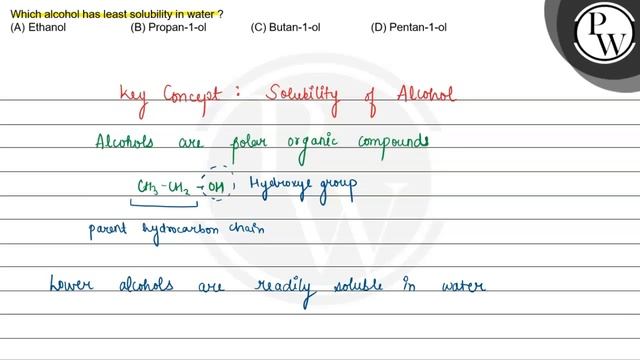 Which alcohol has least solubility in water ?
(A) Ethanol (B) Propan-1-ol (C) Butan-1-ol (D) Pentan-1-ol
PW
Key Concept : Solubility of Alcohol
Alcohols are polar organic compounds
CH3-CH2-OH Hydroxyl group
parent hydrocarbon chain
Lower alcohols are readily soluble in water